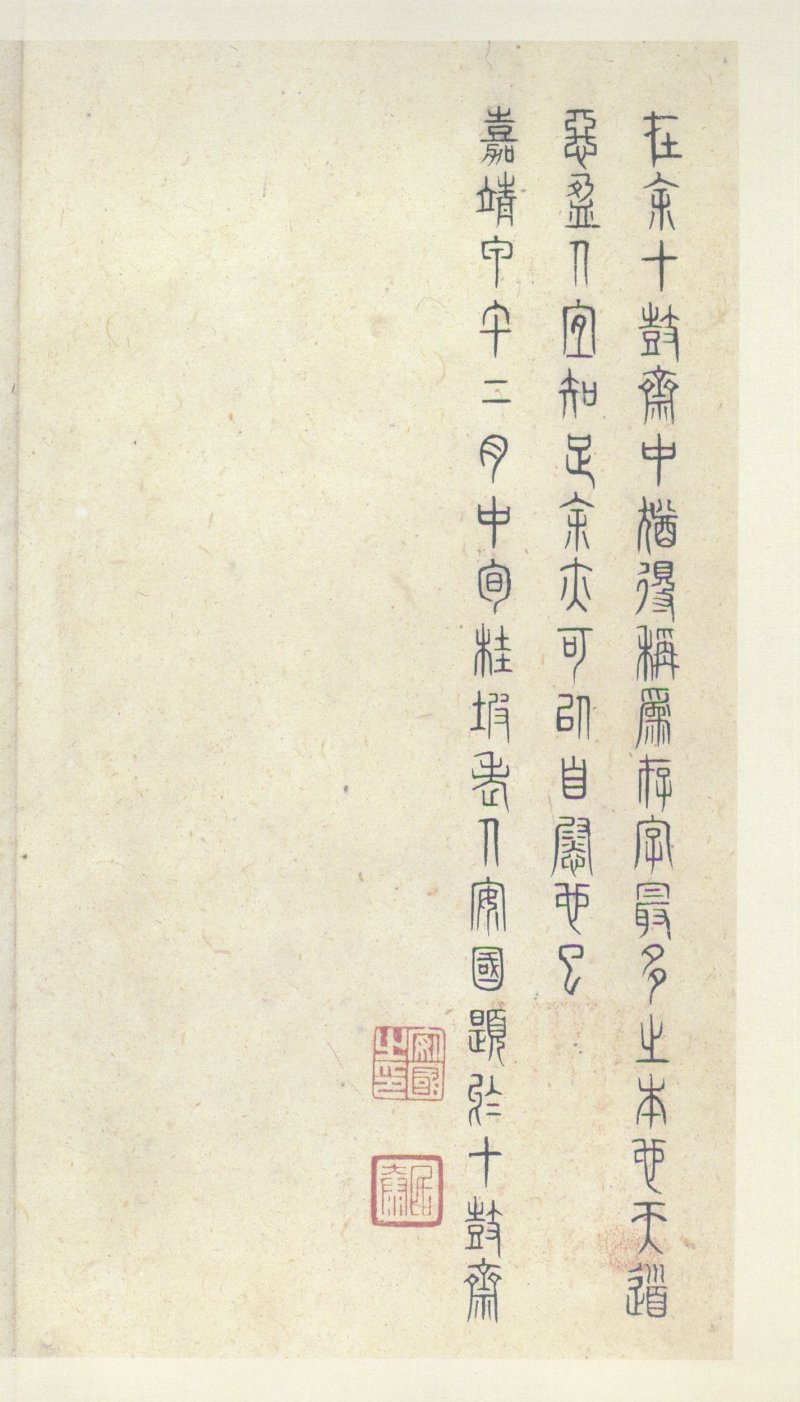 在余十鼓齋中猶得稱爲存字最多之本也天道
惡盈人宜知足余亦可以自慰也已
嘉靖甲午二月中旬桂坡老人安國題於十鼓齋
安國之印